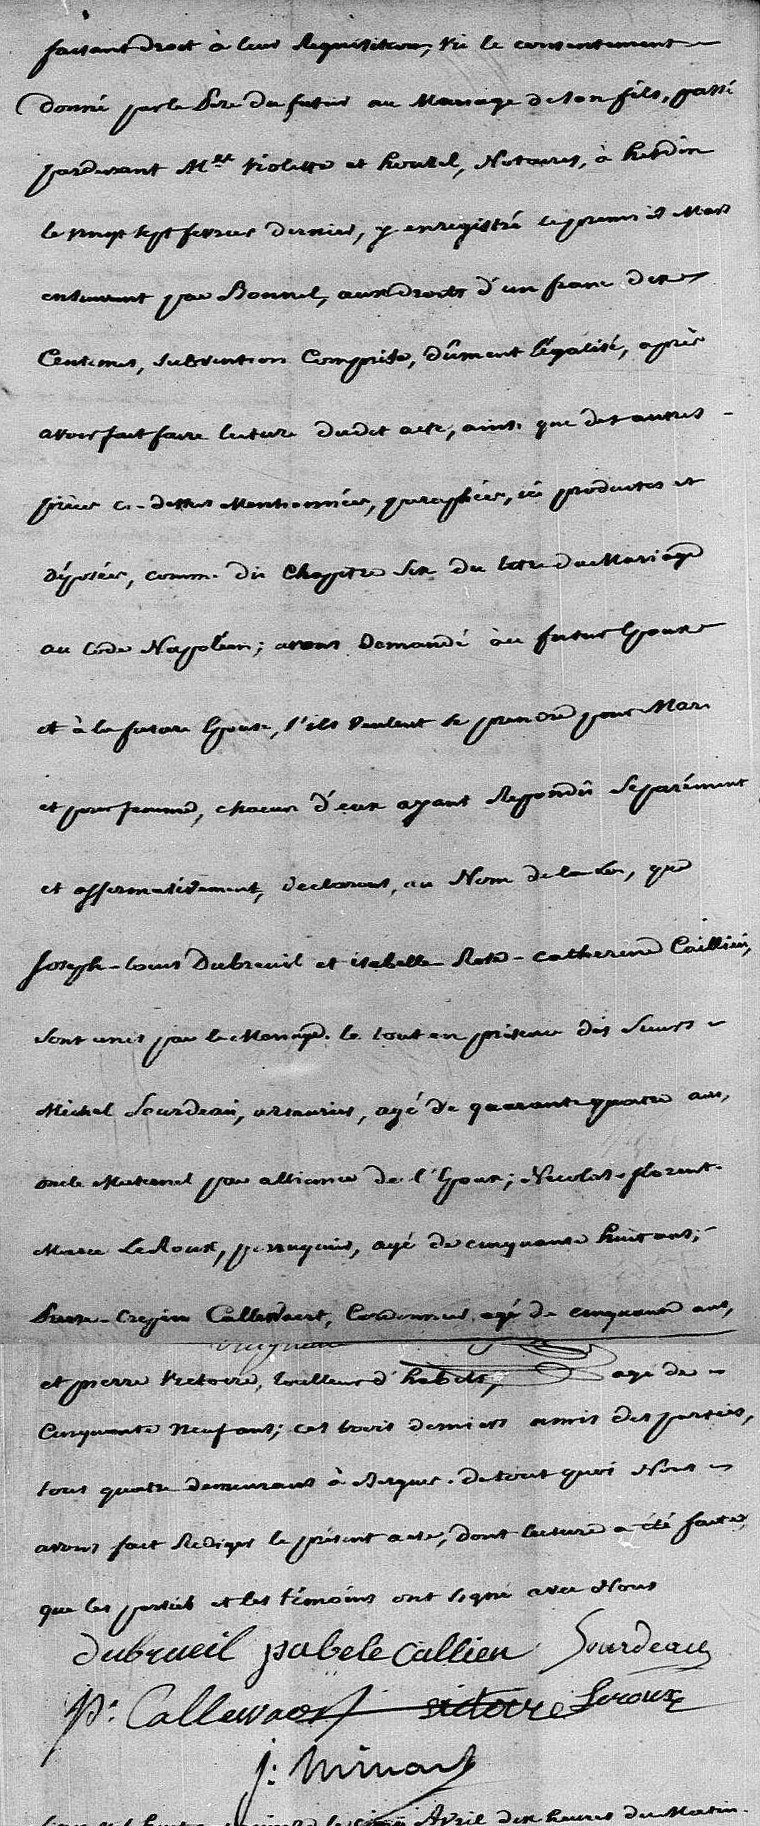 faisant droit à leur Requisition, vu le consentement
donné par le Pere du futur au Mariage de son fils, passé
pardevant Mes. Violette et houzel, Notaires, à hesdin
le vingt sept fevrier dernier, y enregistré le premier Mars
ensuivant par Bonnel, aux droits d'un franc dix
Centimes, subvention Comprise, dûment légalisé, après
avoir fait faire lecture dudit acte, ainsi que des autres
pièces ci-dessus Mentionnées, paraphées, ici produites et
déposées, comme du Chapitre six du titre du Mariage
au Code Napoléon; avons Demandé au futur Epoux
et à la future Epouse, s'ils veulent se prendre pour Mari
et pour femme, chacun d'eux ayant Repondû Separément
et affirmativement, declarons, au Nom de la Loi, que
Joseph-Louis Dubreuil et isabelle-Rose-catherine Caillien,
Sont unis par le Mariage. le tout en présence des Sieurs
Michel Sourdeau, armurier, agé de quarante quatre ans,
oncle Maternel par alliance de l'Epoux; Nicolas-florent-
Marie LeRoux, perruquier, agé de cinquante huit ans;
Pierre-Crepin Callewaert, Cordonnier, agé de cinquante ans,
et pierre Victoire, tailleur d'habits, agé de
Cinquante Neuf ans; ces trois derniers amis des parties,
tous quatre demeurans à Bergues. de tout quoi Nous
avons fait Rediger le présent acte, dont lecture a été faite,
que les parties et les témoins ont signé avec Nous
dubreuil isabele Callien Sourdeau
Pr. Callewaert victoire Leroux
j: Minart
Avril dix heures du Matin.